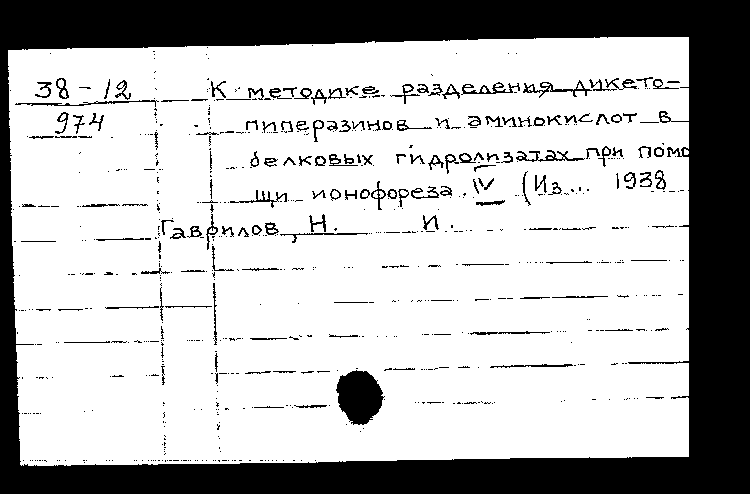 38-12 К методике разделения дикето-
974 пиперазинов и аминокислот в
белковых гидролизатах при помо
щи ионофореза. IV (Из... 1938
Гаврилов, Н. И.